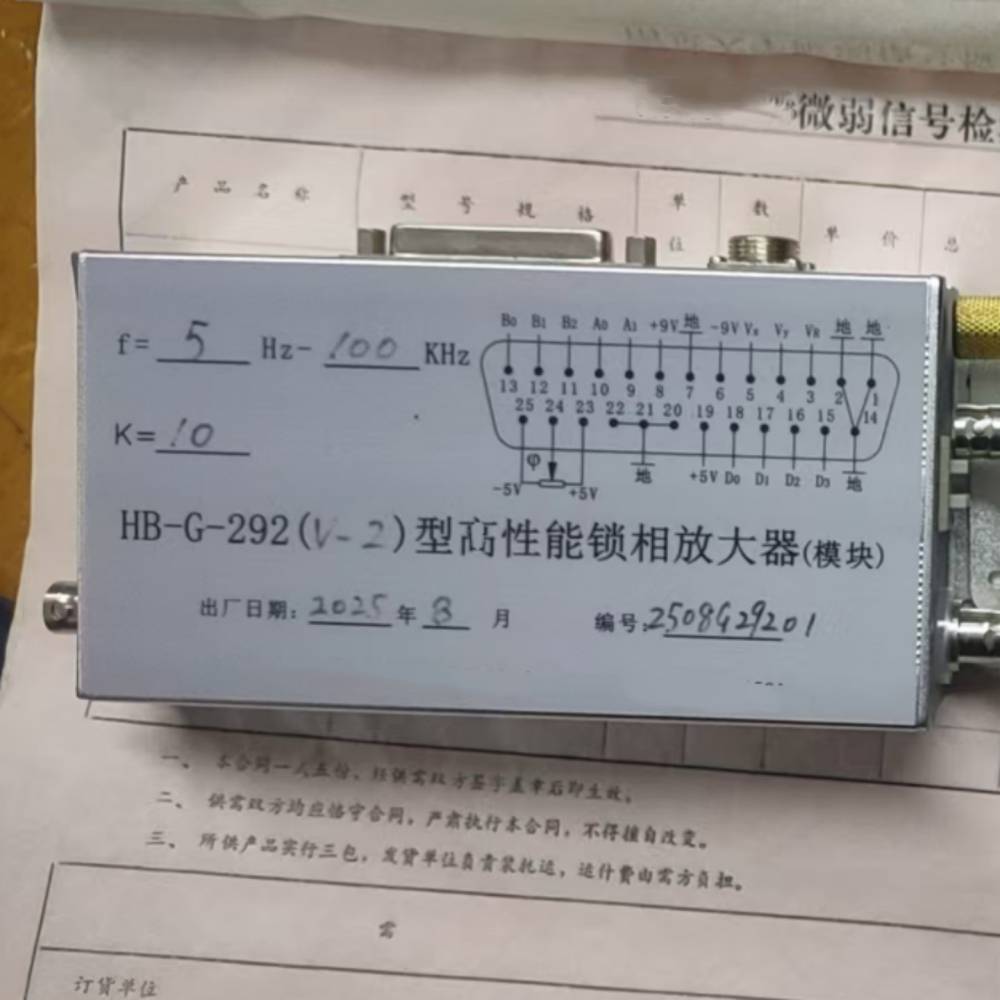 微弱信号检
产品名称 型号规格 单位 数 单价 总
f= 5 Hz- 100 KHz
K= 10
B0 B1 B2 A0 A1 +9V 地 -9V Vx Vy VR 地 地
13 12 11 10 9 8 7 6 5 4 3 2 1
25 24 23 22 21 20 19 18 17 16 15 14
φ
-5V +5V 地 +5V D0 D1 D2 D3 地
HB-G-292(V-2)型高性能锁相放大器(模块)
出厂日期: 2025 年 8 月 编号: 2508G29201
一、本合同一人五份，经供需双方签字盖章后即生效。
二、供需双方均应恪守合同，严肃执行本合同，不得擅自改变。
三、所供产品实行三包，发货单位负责装托运，运什费由需方负担。
需
订货单位